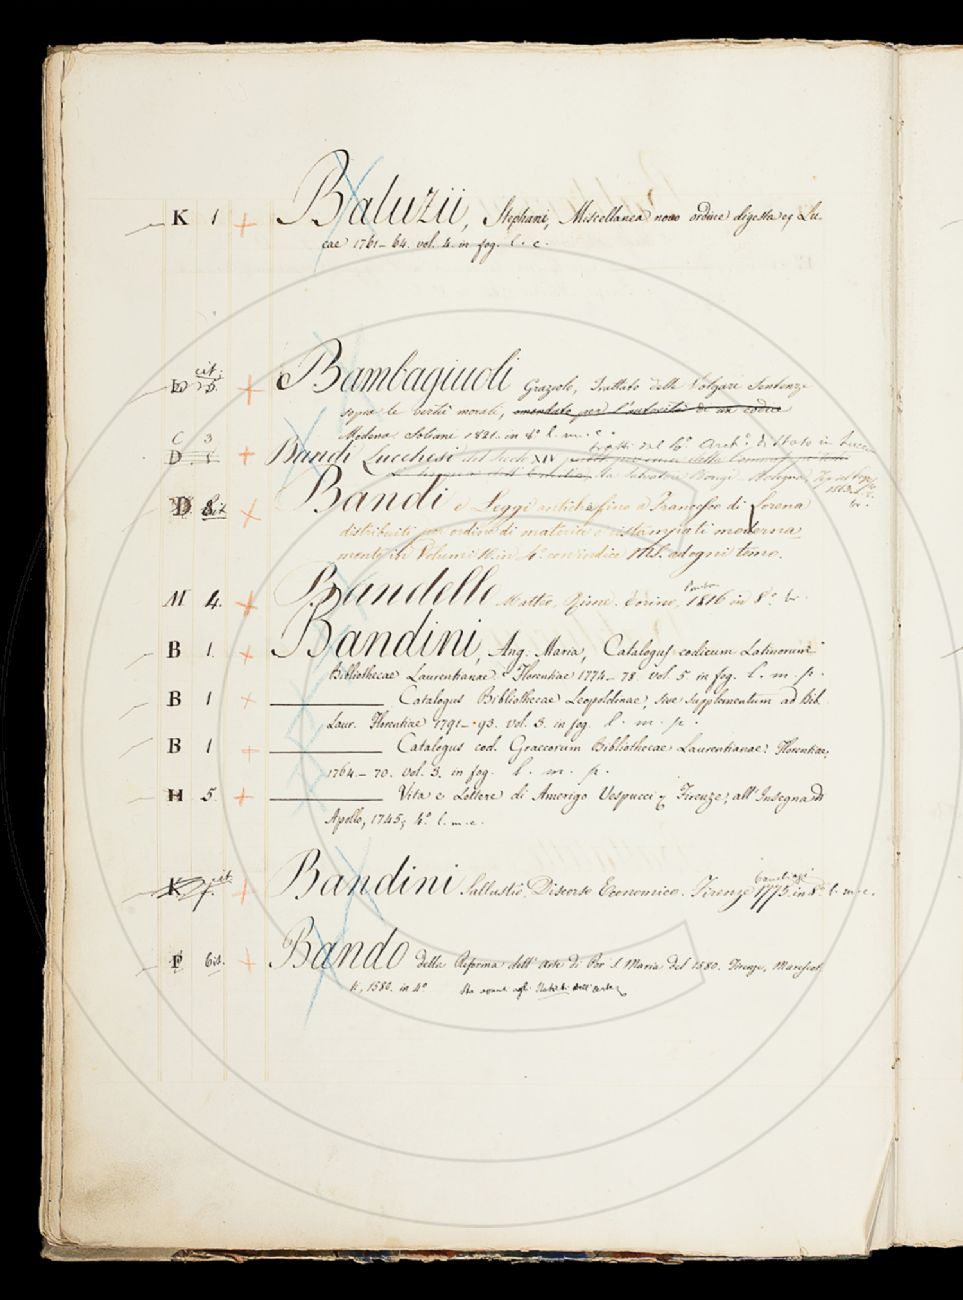 K 1 + Baluzii, Stephani, Miscellanea novo ordine digesta &c Lu-
cae 1761-64. vol. 4. in fog. l. c.
cit.
D 5. + Bambagiuoli Graziolo, Trattato delle Volgari Sentenze
sopra le virtù morali, emendato per l'autorità di un codice
Modena Soliani 1821. in 8.° l. m. c.
C 3 tratti dal R.° Arch.° di Stato in Lucca
D. 1 + Bandi Lucchesi del Sec. XIV
da Salvatore Bongi. Bologna, 1863
D 8. bis + Bandi e Leggi antiche fino a Francesco di Lorena
distribuiti per ordine di materie e ristampati moderna
mente in Volumi 16. in 4.° con indice MS. ad ogni tomo.
M 4. + Bandello Matteo, Rime. Torino, Pomba 1816 in 8.° br.
B 1. + Bandini, Ang. Maria, Catalogus codicum Latinorum
Bibliothecae Laurentianae. Florentiae 1774-78. vol. 5 in fog. l. m. p.
B 1 + ——— Catalogus Bibliothecae Leopoldinae, sive Supplementum ad Bib.
Laur. Florentiae 1791-93. vol. 3. in fog. l. m. p.
B 1 + ——— Catalogus cod. Graecorum Bibliothecae Laurentianae. Florentiae,
1764-70. vol. 3. in fog. l. m. p.
H 5. + ——— Vita e Lettere di Amerigo Vespucci &c Firenze, all'Insegna di
Apollo, 1745, 4.° l. m. c.
K cit. + Bandini Sallustio, Discorso Economico. Firenze Cambiagi 1775. in 8.° l. m. c.
F bis. + Bando della Riforma dell'Arte di Por S. Maria del 1580. Firenze, Marescot-
ti, 1580. in 4.° Sta unito agli Statuti dell'Arte